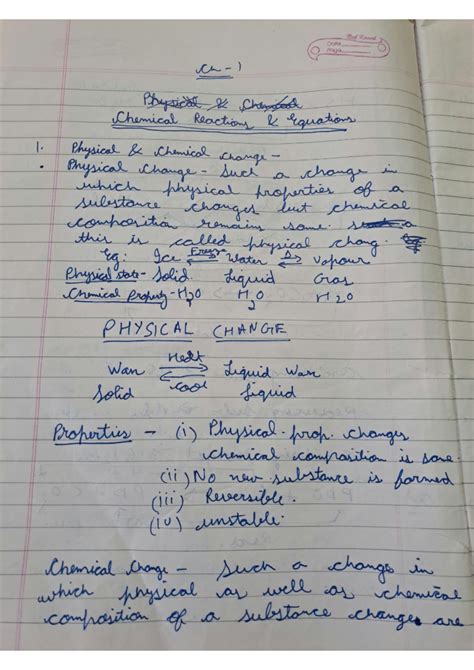 Date
Page
Ch - 1
Physical & Chemical
Chemical Reactions & Equations
1. Physical & Chemical Change -
• Physical Change - Such a change in
which physical properties of a
substance changes but chemical
composition remains same. a
this is called physical chang.
Eg: Ice ⇌ Water ⇌ Vapour
Freeze Δ
Physical state - Solid Liquid Gas
Chemical Property - H2O H2O H2O
PHYSICAL CHANGE
Heat
Wax ⇌ Liquid Wax
Cool
Solid Liquid
Properties - (i) Physical prop. changes
chemical composition is same.
(ii) No new substance is formed
(iii) Reversible.
(iv) unstable.
Chemical Change - Such a change in
which physical as well as chemical
composition of a substance changes are